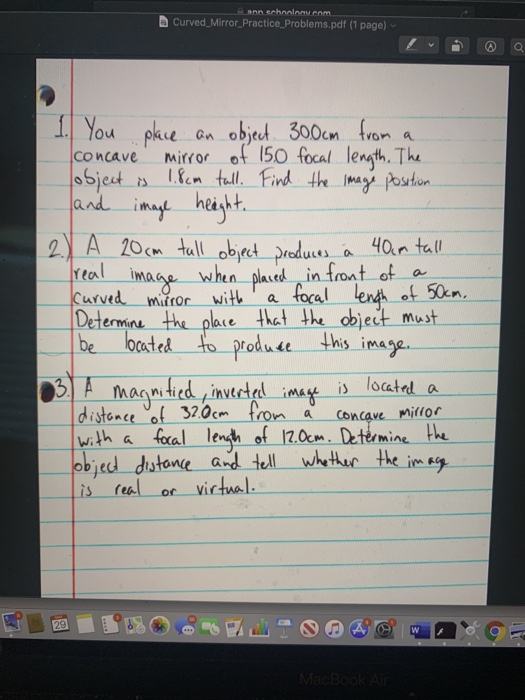 Curved_Mirror_Practice_Problems.pdf (1 page)
1. You place an object 300cm from a
concave mirror of 150 focal length. The
object is 1.8cm tall. Find the image position
and image height.
2.) A 20cm tall object produces a 40cm tall
real image when placed in front of a
curved mirror with a focal length of 50cm.
Determine the place that the object must
be located to produce this image.
3.) A magnified, inverted image is located a
distance of 32.0cm from a concave mirror
with a focal length of 12.0cm. Determine the
object distance and tell whether the image
is real or virtual.
29
W
MacBook Air